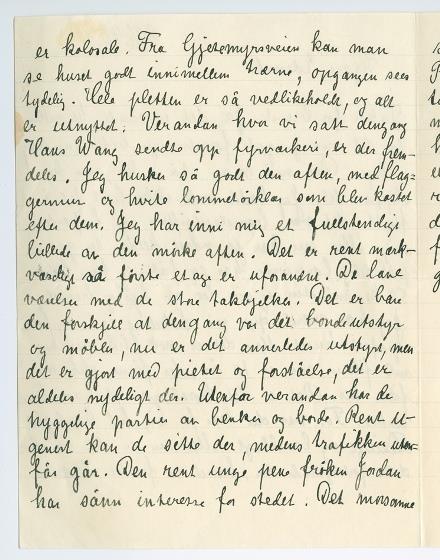 er kolosale. Fra Gjetemyrsveien kan man
se huset godt innimellem trærne, opgangen sees
tydelig. Hele pletten er så vedlikeholdt, og alt
er utnyttet. Verandan hvor vi satt dengang
Hans Wang sendte opp fyrværkeri, er der frem-
deles. Jeg husker så godt den aften, med flag-
germus og hvite lommetørklær som blev kastet
efter dem. Jeg har inni mig et fullstendig
billede av den mørke aften. Det er rent merk-
værdig så første etage er uforandret. De lave
værelser med de store takbjelker. Det er bare
den forskjell at dengang var det bondeutstyr
og møbler, nu er det annerledes utstyrt, men
det er gjort med pietet og forståelse, det er
aldeles nydelig der. Utenfor verandan har de
hyggelige partier av benker og borde. Rent u-
genert kan de sitte der, medens trafikken uten-
for går. Den rent unge pene frøken Jordan
har sånn interesse for stedet. Det morsomme